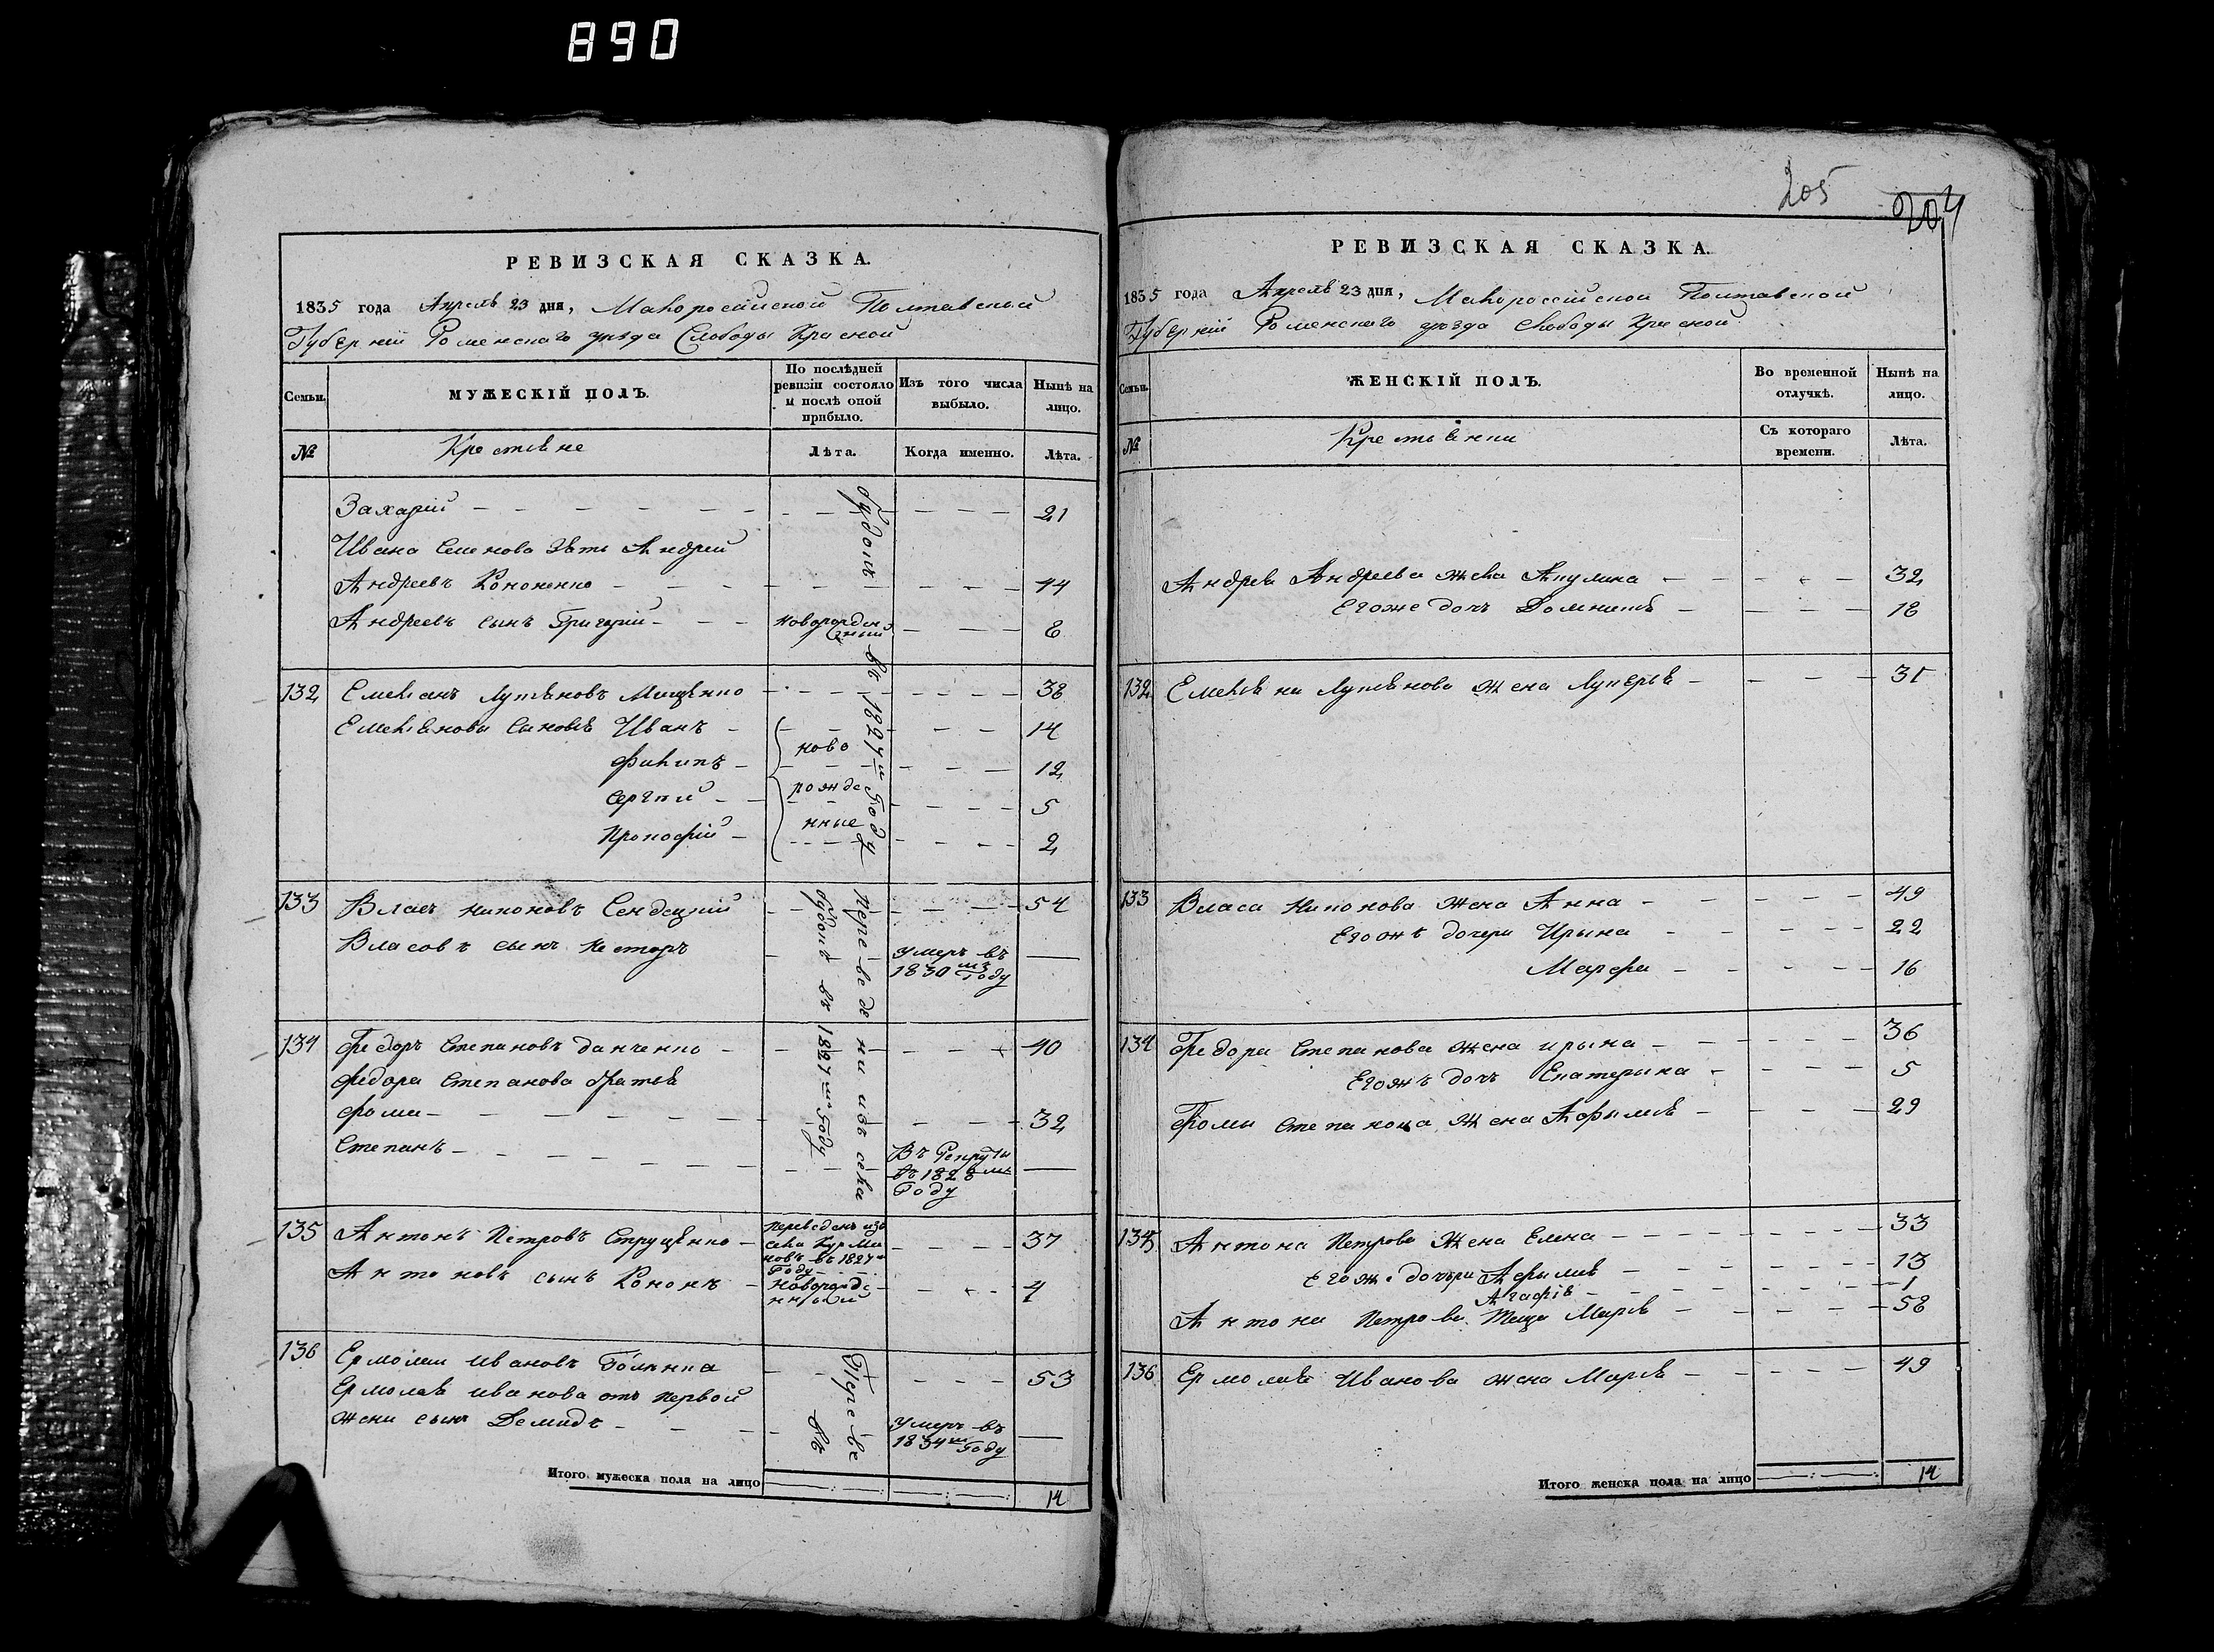 890
РЕВИЗСКАЯ СКАЗКА.
1835 года Апреля 23 дня, Малоросійской Полтавской
Губерніи Роменского уезда Слободы Красной
Семьи.
МУЖЕСКІЙ ПОЛЪ.
По послѣдней ревизіи состояло и послѣ оной прибыло.
Изъ того числа выбыло.
Нынѣ на лицо.
№
Крестьяне
Лѣта.
Когда именно.
Лѣта.
Захарій 21
Ивана Семенова зять Андрей
Андреевъ Кононенко 44
Андреевъ сынъ Григорій новорожденный 8
132 Емельянъ Лукьяновъ Мищенко 38
Емельяновы сыновья Иванъ 14
Филипъ ново 12
Сергѣй рожде 5
Прокофій нные 2
133 Власъ Никоновъ Сендецкій 54
Власовъ сынъ Несторъ Умеръ въ 1830мъ Году
134 Федоръ Степановъ Данченко 40
Федора Степанова братья
Фома 32
Степанъ Въ Рекруты въ 1828мъ Году
135 Антонъ Петровъ Струценко Переведенъ изъ села Курма новъ въ 1827м Году 37
Антоновъ сынъ Кононъ новорожденный 4
136 Ермолай Ивановъ 53
Ермолая Иванова отъ первой
жены сынъ Демидъ Умеръ въ 1834мъ Году
Переведени изъ села
въ 1827м Году
въ 1827м Году
Переве
въ
Итого мужеска пола на лицо 14
205
204
РЕВИЗСКАЯ СКАЗКА.
1835 года Апреля 23 дня, Малороссійской Полтавской
Губерніи Роменского уезда Слободы Красной
Семьи.
ЖЕНСКІЙ ПОЛЪ.
Во временной отлучкѣ.
Нынѣ на лицо.
№
Крестьянки
Съ котораго времени.
Лѣта.
Андрея Андреева жена Акулина 32
Егоже дочь Домникія 18
132 Емельяна Лукьянова жена Лукерья 31
133 Власа Никонова жена Анна 49
Егожъ дочери Ирына 22
Марфа 16
134 Федора Степанова жена Ирына 36
Егожъ дочь Екатерына 5
Фомы Степанова жена Афымія 29
135 Антона Петрова жена Елена 33
Егоже дочьри Афымія 13
Агафія 1
Антона Петрова Теща Марья 58
136 Ермолая Иванова жена Марья 49
Итого женска пола на лицо 14